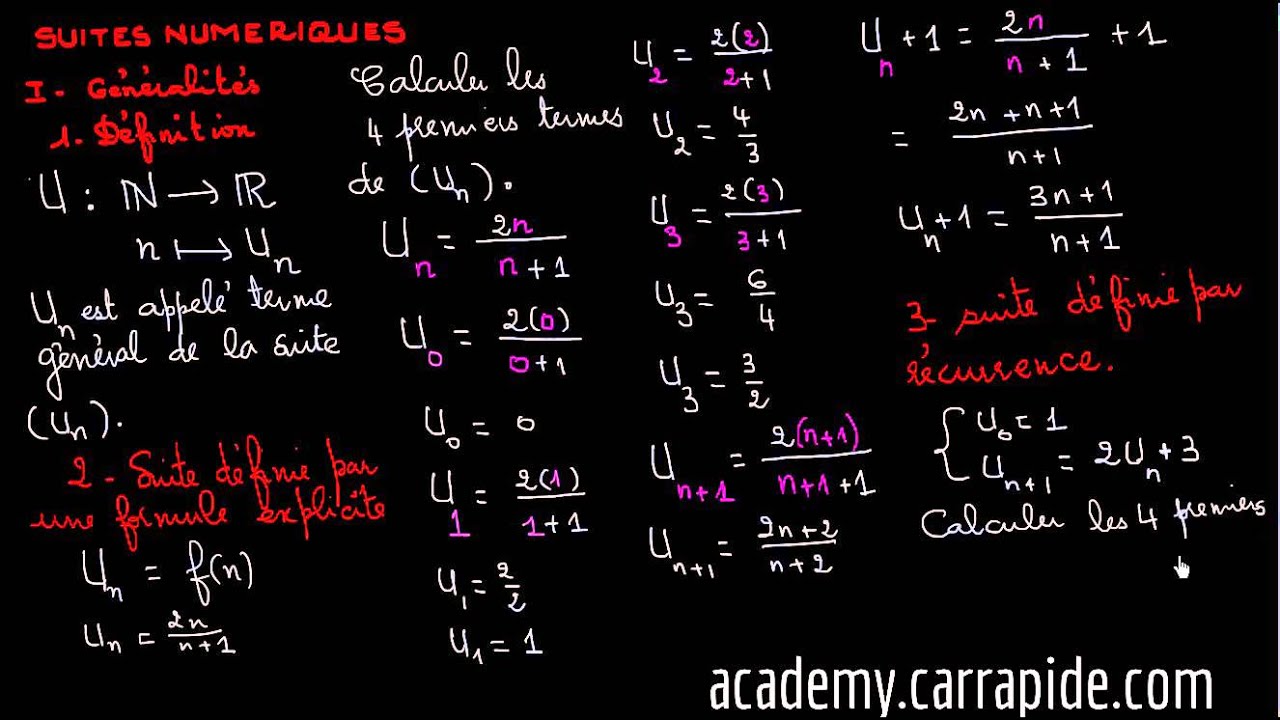 SUITES NUMERIQUES
I - Généralités
1. Définition
U : ℕ → ℝ
n ⟼ U_n
U_n est appelé terme
général de la suite
(U_n).
2 - Suite définie par
une formule explicite
U_n = f(n)
u_n = 2n/(n+1)
Calculer les
4 premiers termes
de (U_n).
U_n = 2n/(n+1)
U_0 = 2(0)/(0+1)
U_0 = 0
U_1 = 2(1)/(1+1)
U_1 = 2/2
U_1 = 1
U_2 = 2(2)/(2+1)
U_2 = 4/3
U_3 = 2(3)/(3+1)
U_3 = 6/4
U_3 = 3/2
U_{n+1} = 2(n+1)/(n+1+1)
U_{n+1} = (2n+2)/(n+2)
U_n + 1 = 2n/(n+1) + 1
= (2n+n+1)/(n+1)
U_n + 1 = (3n+1)/(n+1)
3- suite définie par
récurence.
{ U_0 = 1
U_{n+1} = 2U_n + 3
Calculer les 4 premiers
academy.carrapide.com